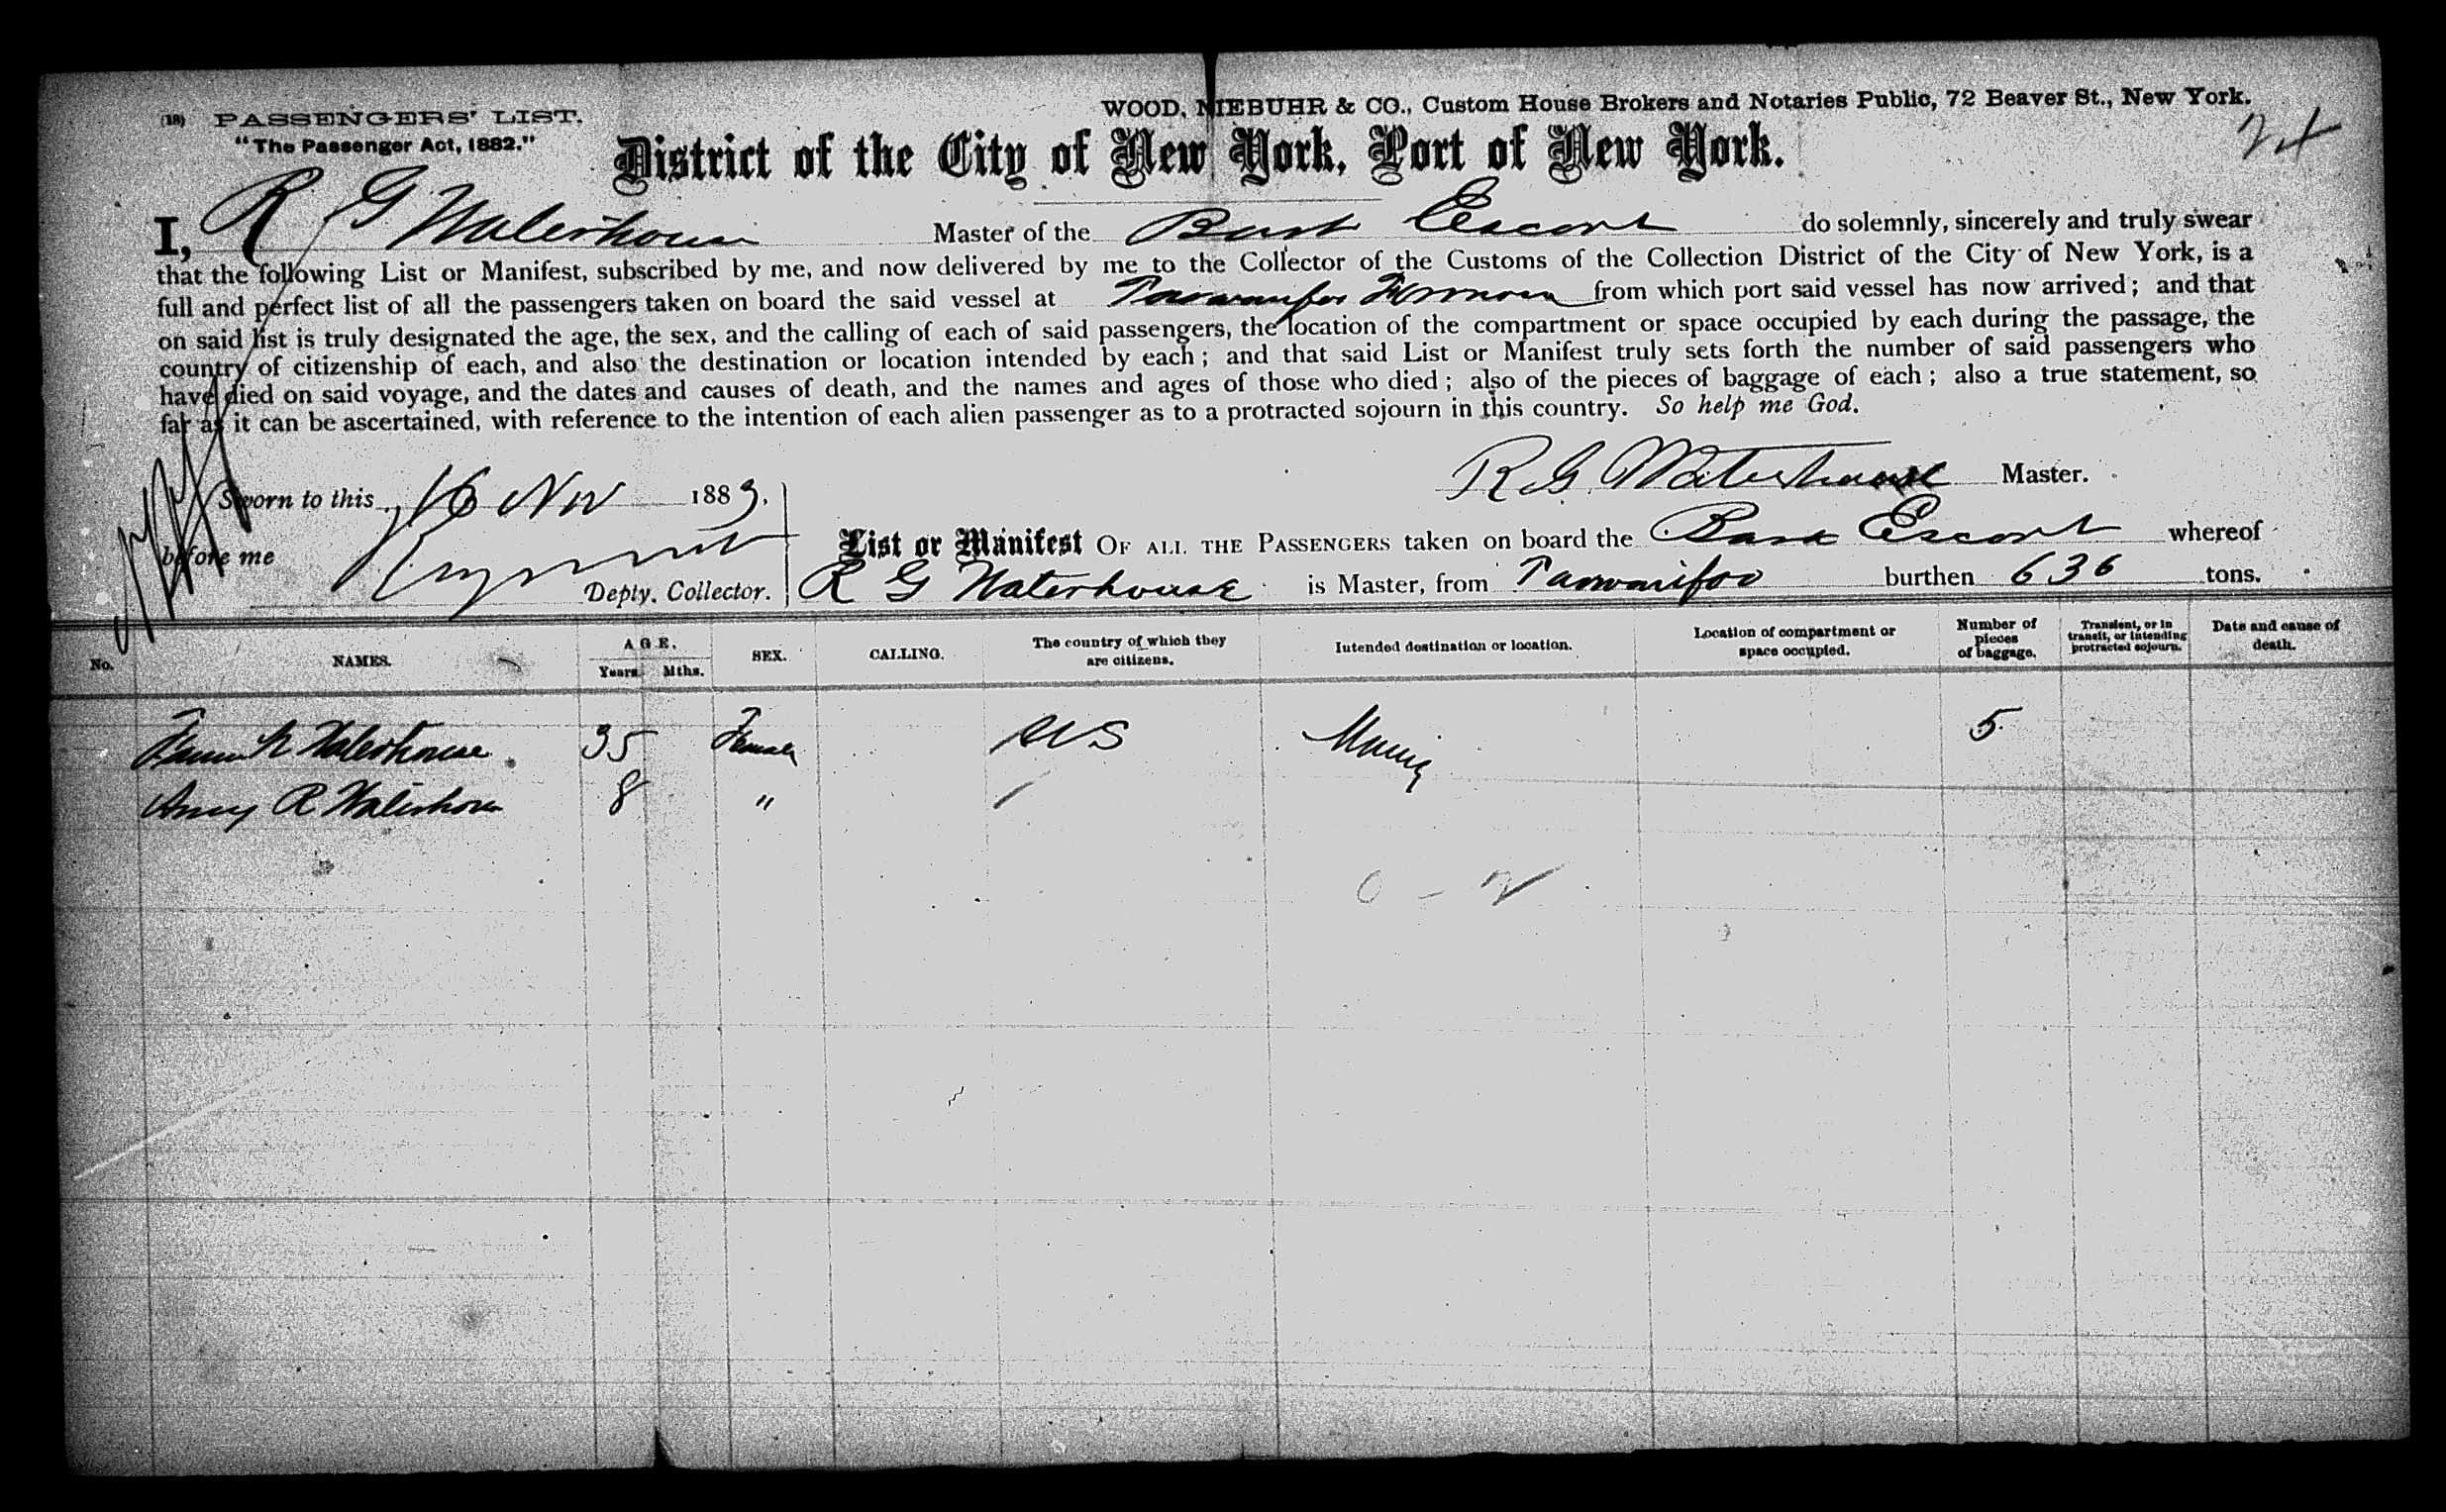 (18) PASSENGERS' LIST.
"The Passenger Act, 1882."
WOOD, NIEBUHR & CO., Custom House Brokers and Notaries Public, 72 Beaver St., New York.
District of the City of New York, Port of New York.
I, R G Waterhouse Master of the Bark Escort do solemnly, sincerely and truly swear
that the following List or Manifest, subscribed by me, and now delivered by me to the Collector of the Customs of the Collection District of the City of New York, is a
full and perfect list of all the passengers taken on board the said vessel at Taowanfoo Formosa from which port said vessel has now arrived; and that
on said list is truly designated the age, the sex, and the calling of each of said passengers, the location of the compartment or space occupied by each during the passage, the
country of citizenship of each, and also the destination or location intended by each; and that said List or Manifest truly sets forth the number of said passengers who
have died on said voyage, and the dates and causes of death, and the names and ages of those who died; also of the pieces of baggage of each; also a true statement, so
far as it can be ascertained, with reference to the intention of each alien passenger as to a protracted sojourn in this country. So help me God.
R. G. Waterhouse Master.
Sworn to this 16 Nov 1883,
before me
Depty. Collector.
List or Manifest OF ALL THE PASSENGERS taken on board the Bark Escort whereof
R G Waterhouse is Master, from Taowanfoo burthen 636 tons.
No. NAMES. AGE. Years. Mths. SEX. CALLING. The country of which they are citizens. Intended destination or location. Location of compartment or space occupied. Number of pieces of baggage. Transient, or in transit, or intending protracted sojourn. Date and cause of death.
Waterhouse 35 Female US 5
Amy R Waterhouse 8 "
0 - 2